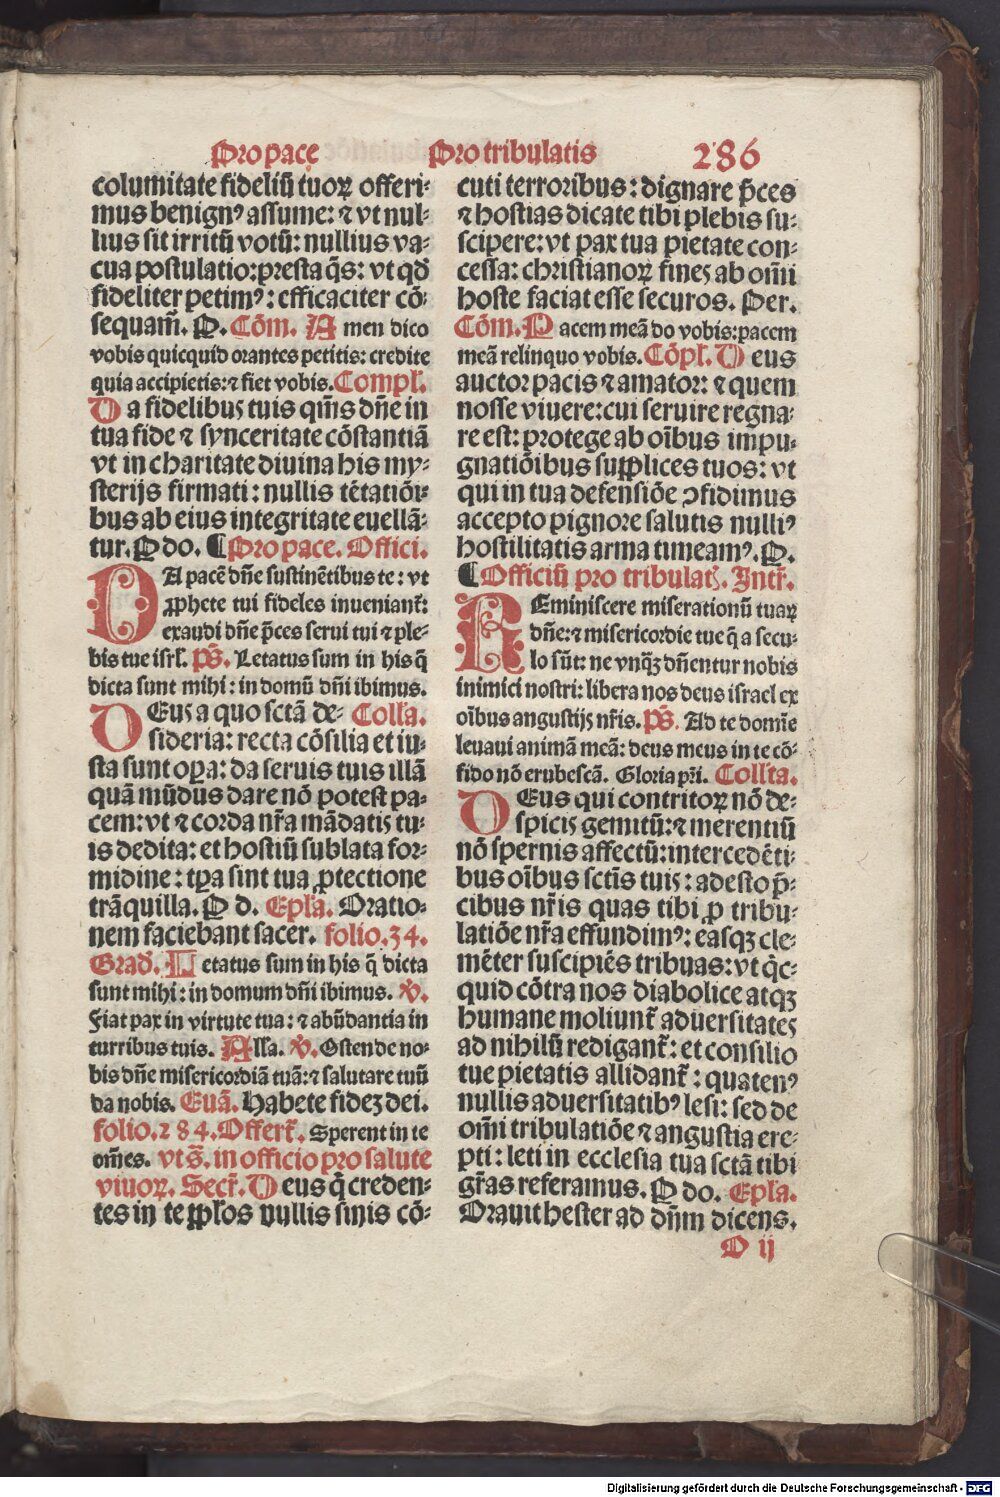 Pro pace Pro tribulatis 286
columitate fideliū tuoꝝ offeri⸗
mus benignꝰ assume: ⁊ vt nul⸗
lius sit irritū votū: nullius va⸗
cua postulatio: presta q̄s: vt qđ
fideliter petimꝰ: efficaciter cō⸗
sequam̄. P. Cōm. A men dico
vobis quicquid orantes petitis: credite
quia accipietis: ⁊ fiet vobis. Compł.
D a fidelibus tuis qm̄s dn̄e in
tua fide ⁊ synceritate cōstantiā
vt in charitate diuina his my⸗
sterijs firmati: nullis tētatiōi⸗
bus ab eius integritate euellā⸗
tur. P do. ¶ Pro pace. Offici.
DA pacē dn̄e sustinētibus te: vt
ꝓphete tui fideles inueniant̄:
exaudi dn̄e p̄ces serui tui ⁊ ple⸗
bis tue isrł. Ps̄. Letatus sum in his q̄
dicta sunt mihi: in domū dn̄i ibimus.
DEus a quo sctā de⸗ Colłā.
sideria: recta cōsilia et iu⸗
sta sunt oꝑa: da seruis tuis illā
quā mūdus dare nō potest pa⸗
cem: vt ⁊ corda nr̄a mādatis tu⸗
is dedita: et hostiū sublata for⸗
midine: tꝑa sint tua ꝓtectione
trāquilla. P d. Epłā. Oratio⸗
nem faciebant sacer. folio. 34.
Grad̄. L etatus sum in his q̄ dicta
sunt mihi: in domum dn̄i ibimus. ℣.
Fiat pax in virtute tua: ⁊ abūdantia in
turribus tuis. Ałła. ℣. Ostende no⸗
bis dn̄e misericordiā tuā: ⁊ salutare tuū
da nobis. Euā. Habete fidez dei.
folio. 284. Offert̄. Sperent in te
om̄es. vt s̄. in officio pro salute
viuoꝝ. Secr̄. D eus q̄ creden⸗
tes in te ꝑpłos nullis sinis cō⸗
cuti terroribus: dignare p̄ces
⁊ hostias dicate tibi plebis su⸗
scipere: vt pax tua pietate con⸗
cessa: christianoꝝ fines ab om̄i
hoste faciat esse securos. Per.
Cōm. P acem meā do vobis: pacem
meā relinquo vobis. Cōpł. D eus
auctor pacis ⁊ amator: ⁊ quem
nosse viuere: cui seruire regna⸗
re est: protege ab oībus impu⸗
gnatiōibus supplices tuos: vt
qui in tua defensiōe ↄfidimus
accepto pignore salutis nulliꝰ
hostilitatis arma timeamꝰ. P.
¶ Officiū pro tribulat̄. Intr̄.
REminiscere miserationū tuaꝝ
dn̄e: ⁊ misericordie tue q̄ a secu⸗
lo sūt: ne vnqꝫ dn̄entur nobis
inimici nostri: libera nos deus israel ex
oībus angustijs nr̄is. Ps̄. Ad te domīe
leuaui animā meā: deus meus in te cō⸗
fido nō erubescā. Gloria pr̄i. Collīta.
DEus qui contritoꝝ nō de⸗
spicis gemitū: ⁊ merentiū
nō spernis affectū: intercedēti⸗
bus oībus sctīs tuis: adesto p̄⸗
cibus nr̄is quas tibi ꝓ tribu⸗
latiōe nr̄a effundimꝰ: easqꝫ cle⸗
mēter suscipiēs tribuas: vt qͥc⸗
quid cōtra nos diabolice atqꝫ
humane moliunt̄ aduersitates
ad nihilū redigant̄: et consilio
tue pietatis allidant̄: quatenꝰ
nullis aduersitatibꝰ lesi: sed de
om̄i tribulatiōe ⁊ angustia ere⸗
pti: leti in ecclesia tua sctā tibi
gr̄as referamus. P do. Epłā.
Orauit hester ad dn̄m dicens.
O ij
Digitalisierung gefördert durch die Deutsche Forschungsgemeinschaft - DFG